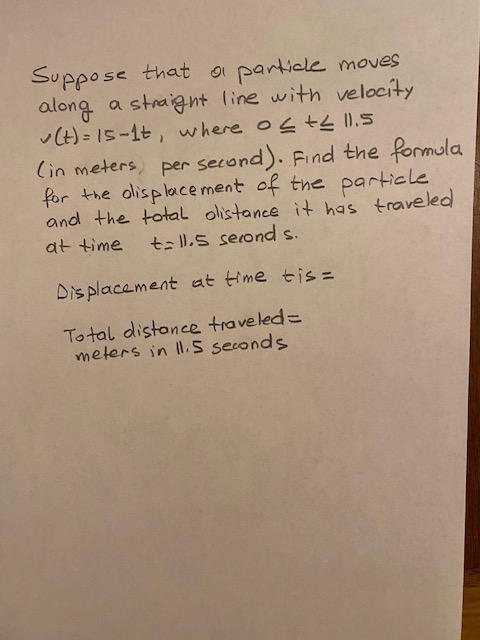 Suppose that a particle moves
along a straight line with velocity
v(t)=15-1t, where 0≤t≤11.5
(in meters per second). Find the formula
for the displacement of the particle
and the total distance it has traveled
at time t=11.5 seconds.
Displacement at time t is =
Total distance traveled=
meters in 11.5 seconds